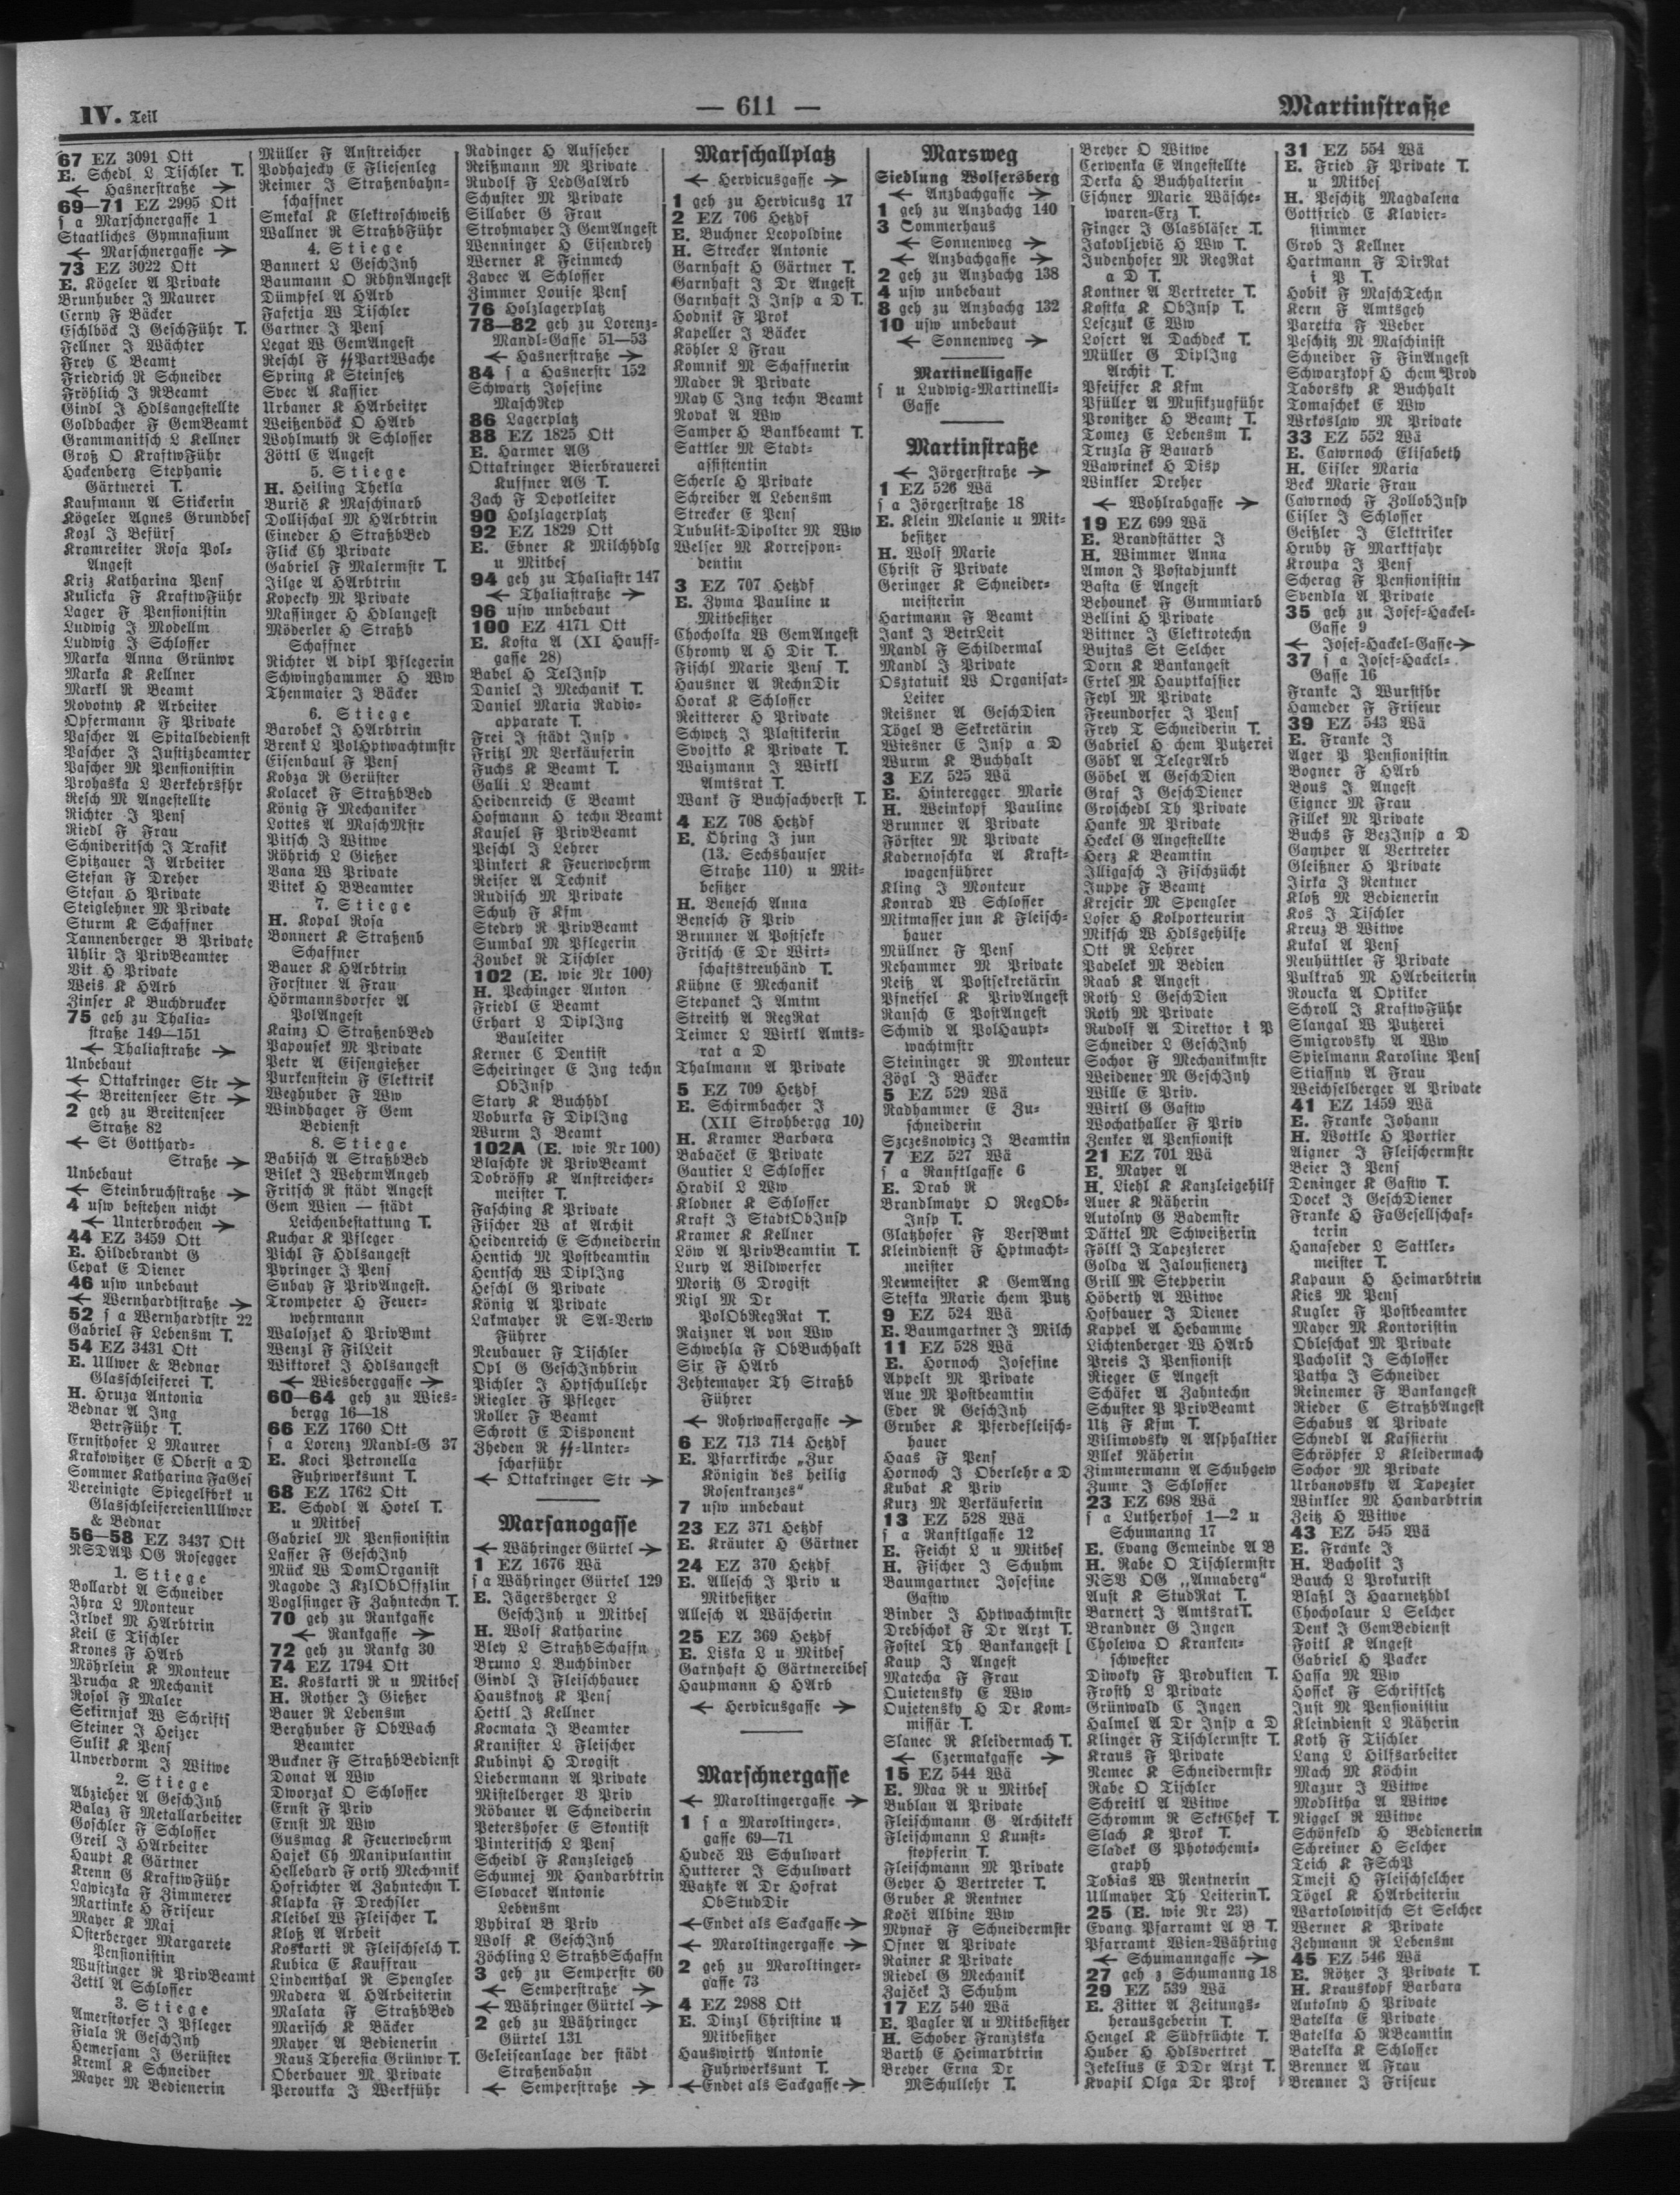 IV. Teil
— 611 —
Martinstraße
67 EZ 3091 Ott
E. Schedl L Tischler T.
← Hasnerstraße →
69—71 EZ 2995 Ott
s a Marschnergasse 1
Staatliches Gymnasium
← Marschnergasse →
73 EZ 3022 Ott
E. Kögeler A Private
Brunhuber J Maurer
Cerny F Bäcker
Eschlböck J GeschFühr T.
Fellner J Wächter
Frey C Beamt
Friedrich R Schneider
Fröhlich J RBeamt
Gindl J Hdlsangestellte
Goldbacher F GemBeamt
Grammanitsch L Kellner
Groß O KraftwFühr
Hackenberg Stephanie
Gärtnerei T.
Kaufmann A Stickerin
Kögeler Agnes Grundbes
Kozl J Befürs
Kramreiter Rosa Pol-
Angest
Kriz Katharina Pens
Kulicka F KraftwFühr
Lager F Pensionistin
Ludwig J Modellm
Ludwig J Schlosser
Marka Anna Grünwr
Marka K Kellner
Markl R Beamt
Novotny K Arbeiter
Opfermann F Private
Pascher A Spitalbedienst
Pascher J Justizbeamter
Pascher M Pensionistin
Prohaska L Verkehrsfhr
Resch M Angestellte
Richter J Pens
Riedl F Frau
Schnideritsch J Trafik
Spitzauer J Arbeiter
Stefan F Dreher
Stefan H Private
Steiglehner M Private
Sturm K Schaffner
Tannenberger B Private
Uhlir J PrivBeamter
Vit H Private
Weis K HArb
Zinser K Buchdrucker
75 geh zu Thalia-
straße 149—151
← Thaliastraße →
Unbebaut
← Ottakringer Str →
← Breitenseer Str →
2 geh zu Breitenseer
Straße 82
← St Gotthard-
Straße →
Unbebaut
← Steinbruchstraße →
4 usw bestehen nicht
← Unterbrochen →
44 EZ 3459 Ott
E. Hildebrandt G
Cepak E Diener
46 usw unbebaut
← Wernhardtstraße →
52 s a Wernhardtstr 22
Gabriel F Lebensm T.
54 EZ 3431 Ott
E. Ullwer & Bednar
Glasschleiferei T.
H. Hruza Antonia
Bednar A Ing
BetrFühr T.
Ernsthofer L Maurer
Krakowitzer E Oberst a D
Sommer Katharina FaGes
Vereinigte Spiegelfbrk u
GlasschleifereienUllwer
& Bednar
56—58 EZ 3437 Ott
NSDAP OG Rosegger
1. Stiege
Bollardt A Schneider
Jhra L Monteur
Jrlvek M HArbtrin
Keil E Tischler
Krones F HArb
Möhrlein K Monteur
Prucha K Mechanik
Rosol F Maler
Sekirnjak W Schrifts
Steiner J Heizer
Sulik K Pens
Unverdorm J Witwe
2. Stiege
Abzieher A GeschInh
Balaz F Metallarbeiter
Goschler F Schlosser
Greil J HArbeiter
Haupt K Gärtner
Krenn G KraftwFühr
Lawiczka F Zimmerer
Martinke H Friseur
Mayer K Maj
Osterberger Margarete
Pensionistin
Wustinger R PrivBeamt
Zettl A Schlosser
3. Stiege
Amerstorfer J Pfleger
Fiala R GeschInh
Hemersam J Gerüster
Kreml K Schneider
Mayer M Bedienerin
Müller F Anstreicher
Podhajecky E Fliesenleg
Reimer J Straßenbahn-
schaffner
Smekal K Elektroschweiß
Wallner R StraßbFühr
4. Stiege
Bannert L GeschInh
Baumann O RbhnAngest
Dümpfel A HArb
Fasetja W Tischler
Gartner J Pens
Legat W GemAngest
Reschl F SSPartWache
Spring K Steinsetz
Svec A Kassier
Urbaner K HArbeiter
Weißenböck O HArb
Wohlmuth R Schlosser
Zöttl E Angest
5. Stiege
H. Heiling Thekla
Burič K Maschinarb
Dollischal M HArbtrin
Eineder H StraßbBed
Flick Ch Private
Gabriel F Malermstr T.
Jilge A HArbtrin
Kopecky M Private
Massinger H Hdlangest
Möderler H Straßb
Schaffner
Richter A dipl Pflegerin
Schwinghammer H Ww
Thenmaier J Bäcker
6. Stiege
Barobek J HArbtrin
Brenk L PolHptwachtmstr
Eisenbaul F Pens
Kobza R Gerüster
Kolacek F StraßbBed
König F Mechaniker
Lottes A MaschMstr
Pitsch J Witwe
Röhrich L Gießer
Vana W Private
Vitek H BBeamter
7. Stiege
H. Kopal Rosa
Bonnert K Straßenb
Schaffner
Bauer K HArbtrin
Forstner A Frau
Hörmannsdorfer A
PolAngest
Kainz O StraßenbBed
Papousek M Private
Petr A Eisengießer
Purkenstein F Elektrik
Weghuber F Ww
Windhager F Gem
Bedienst
8. Stiege
Babisch A StraßbBed
Bilek J WehrmAngeh
Fritsch R städt Angest
Gem Wien — städt
Leichenbestattung T.
Kuchar K Pfleger
Pichl F Hdlsangest
Pyringer J Pens
Subay F PrivAngest.
Trompeter H Feuer-
wehrmann
Waloszek H PrivBmt
Wenzl F FilLeit
Wiktorek J Hdlsangest
← Wiesberggasse →
60—64 geh zu Wies-
bergg 16—18
66 EZ 1760 Ott
s a Lorenz Mandl-G 37
E. Koci Petronella
Fuhrwerksunt T.
68 EZ 1762 Ott
E. Schodl A Hotel T.
u Mitbes
Gabriel M Pensionistin
Lasser F GeschInh
Mück W DomOrganist
Nagode J KzlObOffzlin
Voglsinger F Zahntechn T.
70 geh zu Rankgasse
← Rankgasse →
72 geh zu Rankg 30
74 EZ 1794 Ott
E. Koskarti R u Mitbes
H. Rother J Gießer
Bauer R Lebensm
Berghuber F ObWach
Beamter
Buckner F StraßbBedienst
Donat A Ww
Dworzak O Schlosser
Ernst F Priv
Ernst M Ww
Gusmag K Feuerwehrm
Hajek Ch Manipulantin
Hellebard F orth Mechanik
Hofrichter A Zahntechn T.
Klapka F Drechsler
Kleibel W Fleischer T.
Kloß A Arbeit
Koskarti R Fleischselch T.
Kubica E Kauffrau
Lindenthal R Spengler
Madera A HArbeiterin
Malata F StraßbBed
Marisch K Bäcker
Mayer A Bedienerin
Naus Theresia Grünwr T.
Oberbauer M Private
Peroutka J Werkführ
Radinger H Aufseher
Reißmann M Private
Rudolf F LedGalArb
Schuster M Private
Sillaber G Frau
Strohmayer J GemAngest
Wenninger H Eisendreh
Werner K Feinmech
Zavec A Schlosser
Zimmer Louise Pens
76 Holzlagerplatz
78—82 geh zu Lorenz-
Mandl-Gasse 51—53
← Hasnerstraße →
84 s a Hasnerstr 152
Schwartz Josefine
MaschRep
86 Lagerplatz
88 EZ 1825 Ott
E. Harmer AG
Ottakringer Bierbrauerei
Kuffner AG T.
Zach F Depotleiter
90 Holzlagerplatz
92 EZ 1829 Ott
E. Ebner K Milchhdlg
u Mitbes
94 geh zu Thaliastr 147
← Thaliastraße →
96 usw unbebaut
100 EZ 4171 Ott
E. Kosta A (XI Hauff-
gasse 28)
Babel H TelInsp
Daniel J Mechanik T.
Daniel Maria Radio-
apparate T.
Frei J städt Insp
Fritzl M Verkäuferin
Fuchs K Beamt T.
Galli L Beamt
Heidenreich E Beamt
Hofmann H techn Beamt
Kausel F PrivBeamt
Peschl J Lehrer
Pinkert K Feuerwehrm
Reiser A Technik
Rudisch M Private
Schuh F Kfm
Stedry R PrivBeamt
Sumbal M Pflegerin
Zoubek R Tischler
102 (E. wie Nr 100)
H. Pechinger Anton
Friedl E Beamt
Erhart L DiplIng
Bauleiter
Kerner C Dentist
Scheiringer E Ing techn
ObInsp
Stary K Buchhdl
Voburka F DiplIng
Wurm J Beamt
102A (E. wie Nr 100)
Blaschke R PrivBeamt
Dobrößy K Anstreicher-
meister T.
Fasching K Private
Fischer W ak Archit
Heidenreich E Schneiderin
Hentich M Postbeamtin
Hentsch W DiplIng
Heschl G Private
König A Private
Lakmayer R SA-Verw
Führer
Neubauer F Tischler
Opl G GeschInhbrin
Pichler J Hptschullehr
Riegler F Pfleger
Roller F Beamt
Schrott E Disponent
Zheden R SS-Unter-
scharführ
← Ottakringer Str →
Marsanogasse
← Währinger Gürtel →
1 EZ 1676 Wä
s a Währinger Gürtel 129
E. Jägersberger L
GeschInh u Mitbes
H. Wolf Katharine
Bley L StraßbSchaffn
Bruno L Buchbinder
Gindl J Fleischhauer
Hausknotz K Pens
Hettl J Kellner
Kocmata J Beamter
Kranister L Fleischer
Kubinyi H Drogist
Liebermann A Private
Mistelberger V Priv
Nöbauer A Schneiderin
Petershofer E Skontist
Pinteritsch L Pens
Scheidl F Kanzleigeh
Schumej M Handarbtrin
Slovacek Antonie
Lebensm
Vybiral B Priv
Wolf K GeschInh
Zöchling L StraßbSchaffn
3 geh zu Semperstr 60
← Semperstraße →
← Währinger Gürtel →
2 geh zu Währinger
Gürtel 131
Geleiseanlage der städt
Straßenbahn
← Semperstraße →
Marschallplatz
← Hervicusgasse →
1 geh zu Hervicusg 17
2 EZ 706 Hetzdf
E. Buchner Leopoldine
H. Strecker Antonie
Garnhaft H Gärtner T.
Garnhaft J Dr Angest
Garnhaft J Insp a D T.
Hodnik F Prok
Kapeller J Bäcker
Köhler L Frau
Komnik M Schaffnerin
Mader R Private
May C Ing techn Beamt
Novak A Ww
Samper H Bankbeamt T.
Sattler M Stadt-
assistentin
Scherle H Private
Schreiber A Lebensm
Strecker E Pens
Tubulit-Dipolter M Ww
Welser M Korrespon-
dentin
3 EZ 707 Hetzdf
E. Zyma Pauline u
Mitbesitzer
Chocholka W GemAngest
Chromy A H Dir T.
Fischl Marie Pens T.
Hausner A RechnDir
Horak K Schlosser
Reitterer H Private
Schwetz J Plastikerin
Svojtko K Private T.
Waizmann J Wirkl
Amtsrat T.
Wank F Buchsachverst T.
4 EZ 708 Hetzdf
E. Öhring J jun
(13. Sechshauser
Straße 110) u Mit-
besitzer
H. Benesch Anna
Benesch F Priv
Brunner A Postsekr
Fritsch E Dr Wirt-
schaftstreuhänd T.
Kühne E Mechanik
Stepanek J Amtm
Streith A RegRat
Teimer L Wirkl Amts-
rat a D
Thalmann A Private
5 EZ 709 Hetzdf
E. Schirmbacher J
(XII Strohbergg 10)
H. Kramer Barbara
Babaček E Private
Gautier L Schlosser
Hradil L Ww
Klodner K Schlosser
Kraft J StadtObInsp
Kramer K Kellner
Löw A PrivBeamtin T.
Lury A Bildwerfer
Moritz G Drogist
Nigl M Dr
PolObRegRat T.
Raizner A von Ww
Schwehla F ObBuchhalt
Six F HArb
Zehtemayer Th Straßb
Führer
← Rohrwassergasse →
6 EZ 713 714 Hetzdf
E. Pfarrkirche „Zur
Königin des heilig
Rosenkranzes“
7 usw unbebaut
23 EZ 371 Hetzdf
E. Kräuter H Gärtner
24 EZ 370 Hetzdf
E. Allesch J Priv u
Mitbesitzer
Allesch A Wäscherin
25 EZ 369 Hetzdf
E. Liska L u Mitbes
Garnhaft H Gärtnereibes
Haupmann H HArb
← Hervicusgasse →
Marschnergasse
← Maroltingergasse →
1 s a Maroltinger-
gasse 69—71
Hudeč W Schulwart
Hutterer J Schulwart
Watzke A Dr Hofrat
ObStudDir
← Endet als Sackgasse →
← Maroltingergasse →
2 geh zu Maroltinger-
gasse 73
4 EZ 2988 Ott
E. Dinzl Christine u
Mitbesitzer
Hauswirth Antonie
Fuhrwerksunt T.
← Endet als Sackgasse →
Marsweg
Siedlung Wolfersberg
← Anzbachgasse →
1 geh zu Anzbachg 140
3 Sommerhaus
← Sonnenweg →
← Anzbachgasse →
2 geh zu Anzbachg 138
4 usw unbebaut
8 geh zu Anzbachg 132
10 usw unbebaut
← Sonnenweg →
Martinelligasse
s u Ludwig-Martinelli-
Gasse
Martinstraße
← Jörgerstraße →
1 EZ 526 Wä
s a Jörgerstraße 18
E. Klein Melanie u Mit-
besitzer
H. Wolf Marie
Christ F Private
Geringer K Schneider-
meisterin
Hartmann F Beamt
Jank J BetrLeit
Mandl F Schildermal
Mandl J Private
Osztatuik W Organisat-
Leiter
Reisner A GeschDien
Tögel B Sekretärin
Wiesner E Insp a D
Wurm K Buchhalt
3 EZ 525 Wä
E. Hinteregger Marie
H. Weinkopf Pauline
Brunner A Private
Förster M Private
Kadernoschka A Kraft-
wagenführer
Kling J Monteur
Konrad W Schlosser
Mitmasser jun K Fleisch-
hauer
Müllner F Pens
Nehammer M Private
Neiß A Postsekretärin
Pfneisel K PrivAngest
Rausch E PostAngest
Schmid A PolHaupt-
wachtmstr
Steininger R Monteur
Zögl J Bäcker
5 EZ 529 Wä
Radhammer E Zu-
schneiderin
Szczesnowicz J Beamtin
7 EZ 527 Wä
s a Ranftlgasse 6
E. Drab R
Brandlmayr O RegOb-
Insp T.
Glatzhofer F VersBmt
Kleindienst F Hptmacht-
meister
Neumeister K GemAng
Stefka Marie chem Putz
9 EZ 524 Wä
E. Baumgartner J Milch
11 EZ 528 Wä
E. Hornoch Josefine
Appelt M Private
Aue M Postbeamtin
Eder R GeschInh
Gruber K Pferdefleisch-
hauer
Haas F Pens
Hornoch J Oberlehr a D
Kubat K Priv
Kurz M Verkäuferin
13 EZ 528 Wä
s a Ranftlgasse 12
E. Feicht L u Mitbes
H. Fischer J Schuhm
Baumgartner Josefine
Gastw
Binder J Hptwachtmstr
Drebschok F Dr Arzt T.
Fostel Th Bankangest [
Kaup J Angest
Matecha F Frau
Quietensky E Ww
Quietensky H Dr Kom-
missär T.
Slanec R Kleidermach T.
← Czermakgasse →
15 EZ 544 Wä
E. Maa R u Mitbes
Bublan A Private
Fleischmann G Architekt
Fleischmann L Kunst-
stopferin T.
Fleischmann M Private
Geyer H Vertreter T.
Gruber K Rentner
Koči Albine Ww
Mynař F Schneidermstr
Ofner A Private
Rainer K Private
Riedel G Mechanik
Zajček J Schuhm
17 EZ 540 Wä
E. Pagler A u Mitbesitzer
H. Schober Franziska
Barth E Heimarbtrin
Breyer Erna Dr
MSchullehr T.
Breyer O Witwe
Cerwenka E Angestellte
Derka H Buchhalterin
Eischner Marie Wäsche-
waren-Erz T.
Finger J Glasbläser T.
Jakovljevič H Ww T.
Judenhofer M RegRat
a D T.
Kontner A Vertreter T.
Kostka K ObInsp T.
Lesczuk E Ww
Losert A Dachdeck T.
Müller G DiplIng
Archit T.
Pfeiffer K Kfm
Pfüller A Musikzugführ
Pronitzer H Beamt T.
Tomez E Lebensm T.
Truzla F Bauarb
Wawrinek H Disp
Winkler Dreher
← Wohlrabgasse →
19 EZ 699 Wä
E. Brandstätter J
H. Wimmer Anna
Amon J Postadjunkt
Basta E Angest
Behounek F Gummiarb
Bellini H Private
Bittner J Elektrotechn
Bujtas St Selcher
Dorn K Bankangest
Ertel M Hauptkassier
Feyl M Private
Freundorfer J Pens
Frey T Schneiderin T.
Gabriel H chem Putzerei
Göbl A TelegrArb
Göbel A GeschDien
Graf J GeschDiener
Groschedl Th Private
Hanke M Private
Heckel G Angestellte
Herz K Beamtin
Illigasch J Fischzücht
Juppe F Beamt
Krejcir M Spengler
Loser H Kolporteurin
Miksch W Hdlsgehilfe
Ott R Lehrer
Padelek M Bedien
Raab K Angest
Roth L GeschDien
Roth M Private
Rudolf A Direktor i P
Schneider L GeschInh
Sochor F Mechanikmstr
Weidener M GeschInh
Wille E Priv.
Wirtl G Gastw
Wochathaller F Priv
Zenker A Pensionist
21 EZ 701 Wä
E. Mayer A
H. Liehl K Kanzleigehilf
Auer K Näherin
Autolny G Bademstr
Dättel M Schweißerin
Fölkl J Tapezierer
Golda A Jalousienerz
Grill M Stepperin
Höberth A Witwe
Hofbauer J Diener
Kappel A Hebamme
Lichtenberger W HArb
Preis J Pensionist
Rieger E Angest
Schäfer A Zahntechn
Schuster P PrivBeamt
Utz F Kfm T.
Vilimovsky A Asphaltier
Vllek Näherin
Zimmermann A Schuhgew
Zumr J Schlosser
23 EZ 698 Wä
s a Lutherhof 1—2 u
Schumanng 17
E. Evang Gemeinde A B
H. Rabe O Tischlermstr
NSV OG „Annaberg“
Aust K StudRat T.
Barnert J AmtsratT.
Brandner G Ingen
Cholewa O Kranken-
schwester
Diwoky F Produkien T.
Frosth L Private
Grünwald C Ingen
Halmel A Dr Insp a D
Klinger F Tischlermstr T.
Kraus F Private
Nemec K Schneidermstr
Rabe O Tischler
Schreitl A Witwe
Schromm R SektChef T.
Slach K Prok T.
Sladek G Photochemi-
graph
Tobias W Rentnerin
Ullmayer Th LeiterinT.
25 (E. wie Nr 23)
Evang Pfarramt A B T.
Pfarramt Wien-Währing
← Schumanngasse →
27 geh z Schumanng 18
29 EZ 539 Wä
E. Zitter A Zeitungs-
herausgeberin T.
Hengel K Südfrüchte T.
Huber H Hdlsvertret
Jekelius E DDr Arzt T.
Kvapil Olga Dr Prof
31 EZ 554 Wä
E. Fried F Private T.
u Mitbes
H. Peschitz Magdalena
Gottfried E Klavier-
stimmer
Grob J Kellner
Hartmann F DirRat
i P T.
Hobik F MaschTechn
Kern F Amtsgeh
Paretta F Weber
Peschitz M Maschinist
Schneider F FinAngest
Schwarzkopf H chem Prod
Taborsky K Buchhalt
Tomaschek E Ww
Wrkoslaw M Private
33 EZ 552 Wä
E. Cawrnoch Elisabeth
H. Cisler Maria
Beck Marie Frau
Cawrnoch F ZollobInsp
Cisler J Schlosser
Geißler J Elektriker
Hruby F Marktfahr
Kroupa J Pens
Scherag F Pensionistin
Svendla A Private
35 geh zu Josef-Hackel-
Gasse 9
← Josef-Hackel-Gasse →
37 s a Josef-Hackel-
Gasse 16
Franke J Wurstfbr
Hameder F Friseur
39 EZ 543 Wä
E. Franke J
Ager P Pensionistin
Bogner F HArb
Bous J Angest
Eigner M Frau
Fillek M Private
Buchs F BezInsp a D
Gamper A Vertreter
Gleißner H Private
Jirka J Rentner
Kloß M Bedienerin
Kos J Tischler
Kreuz B Witwe
Kukal A Pens
Neuhüttler F Private
Pulkrab M HArbeiterin
Roucka A Optiker
Schroll J KraftwFühr
Slangal W Putzerei
Smigrovsky A Ww
Spielmann Karoline Pens
Stiassny A Frau
Weichselberger A Private
41 EZ 1459 Wä
E. Franke Johann
H. Wottle H Portier
Aigner J Fleischermstr
Beier J Pens
Deninger K Gastw T.
Docek J GeschDiener
Franke H FaGesellschaf-
terin
Hanaseder L Sattler-
meister T.
Kapaun H Heimarbtrin
Kies M Pens
Kugler F Postbeamter
Mayer M Kontoristin
Obleschak M Private
Pacholik J Schlosser
Patha J Schneider
Reinemer F Bankangest
Rieder C StraßbAngest
Schabus A Private
Schnedl A Kassierin
Schröpfer L Kleidermach
Sochor M Private
Urbanovsky A Tapezier
Winkler M Handarbtrin
Zeitz H Witwe
43 EZ 545 Wä
E. Franke J
H. Bacholik J
Bauch L Prokurist
Blatzl J Haarnetzhdl
Chocholaur L Selcher
Denk J GemBedienst
Foitl K Angest
Gabriel H Packer
Hassa M Ww
Hossek F Schriftsetz
Just M Pensionistin
Kleindienst L Näherin
Koth F Tischler
Lang L Hilfsarbeiter
Mach M Köchin
Mazur J Witwe
Modlitha A Witwe
Niggel R Witwe
Schönfeld H Bedienerin
Schreiner H Selcher
Teich K FSchP
Tmeji H Fleischselcher
Tögel K HArbeiterin
Wartolowitsch St Selcher
Werner K Private
Zehmann R Lebensm
45 EZ 546 Wä
E. Rötzer J Private T.
H. Krauskopf Barbara
Autolny H Private
Batelka E Private
Batelka H RBeamtin
Batelka K Schlosser
Brenner A Frau
Brenner J Friseur